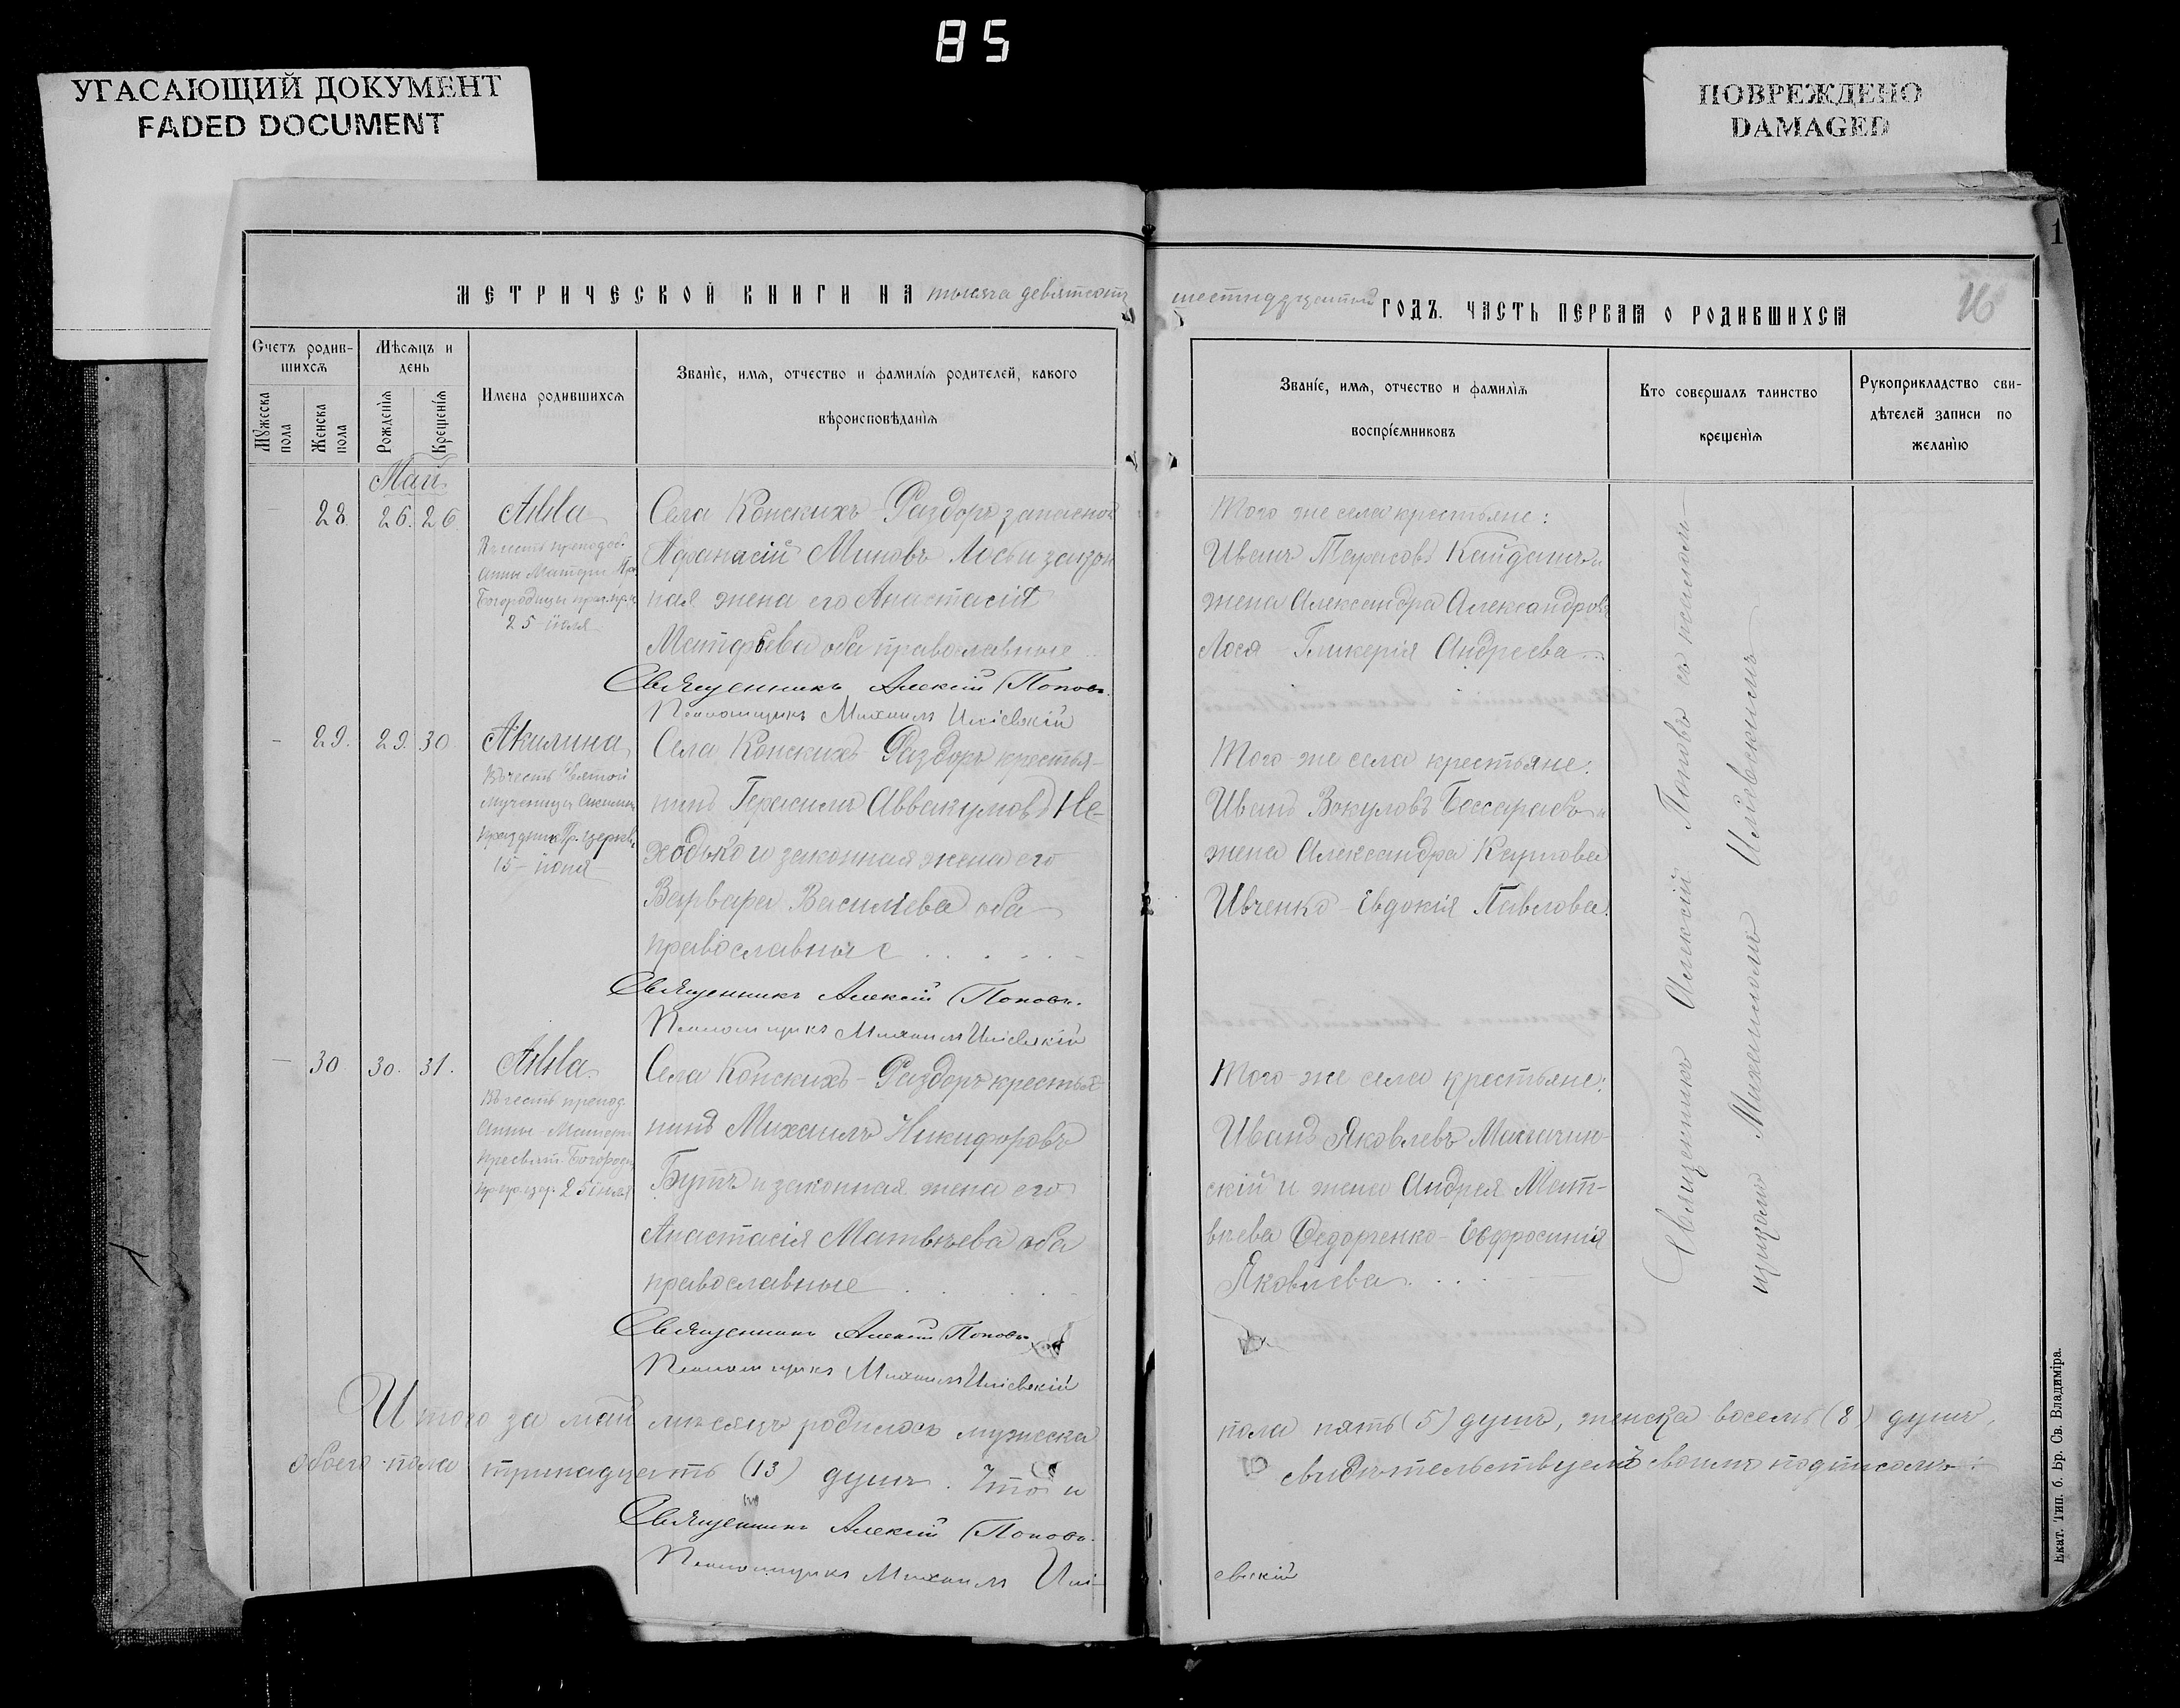 85
УГАСАЮЩИЙ ДОКУМЕНТ
FADED DOCUMENT
ПОВРЕЖДЕНО
DAMAGED
1
16
МЕТРИЧЕСКОЙ КНИГИ НА тысяча девятсотъ
шестнадцатый ГОДЪ. ЧАСТЬ ПЕРВАЯ О РОДИВШИХСЯ
Счетъ родив-
шихся
Мужеска пола
Женска пола
Мѣсяцъ и
день
Рожденія
Крещенія
Имена родившихся
Званіе, имя, отчество и фамилія родителей, какого
вѣроисповѣданія
Званіе, имя, отчество и фамилія
воспріемниковъ
Кто совершалъ таинство
крещенія
Рукоприкладство сви-
дѣтелей записи по
желанію
Май
28. 26. 26
Анна
Въ честь преподоб.
Анны Матери Пр.
Богородицы
25 іюля
Села Конскихъ-Раздоръ запасной
Афанасій Миновъ Лось и закон
ная жена его Анастасія
Матфѣева оба православные
Священникъ Алексій Поповъ.
Псаломщикъ Михаилъ Иліевскій
Того же села крестьяне:
Иванъ Тарасовъ Кайданъ и
жена Александра Александров
Лося - Гликерія Андреева
- 29. 29. 30
Акилина
Въ честь Святой
Мученицы Акилины
15 - іюня
Села Конскихъ-Раздоръ крестья-
нинъ Герасимъ Аввакумовъ Не-
ходько и законная жена его
Варвара Василіева оба
православные
Священникъ Алексій Поповъ.
Псаломщикъ Михаилъ Иліевскій
Того-же села крестьяне:
Иванъ Вокуловъ Бессарабъ и
жена Александра Карпова
Ивченко - Евдокія Павлова.
- 30 30. 31.
Анна
Въ честь препод.
Анны - Матери
Пресвят. Богород.
25 іюля
Села Конскихъ-Раздоръ крестья
нинъ Михаилъ Никифоровъ
Бутъ и законная жена его
Анастасія Матвѣева оба
православные
Священникъ Алексій Поповъ
Псаломщикъ Михаилъ Иліевскій
Того-же села крестьяне:
Иванъ Яковлевъ
скій и жена Андрея Мат-
вѣева Федорченко - Евфросинія
Яковлева
Священникъ Алексій Поповъ съ псалом-
щикомъ Михаиломъ Иліевскимъ
Итого за май мѣсяцъ родилось мужеска
пола пять (5) душъ, женска восемь (8) душъ,
обоего пола тринадцать (13) душъ. Что и
свидѣтельствуемъ своимъ подписомъ:
Священникъ Алексій Поповъ.
Псаломщикъ Михаилъ Илі-
евскій
Екат. Тип. б. Бр. Св. Владиміра.